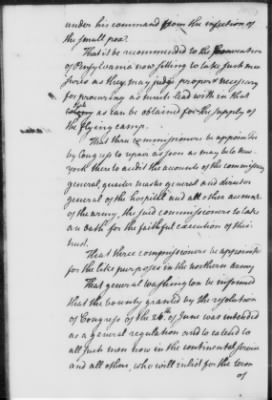 under his command from the infection of
the small pox.
That it be recommended to the Convention
of Pensylvania now sitting to take such mea
sures as they may judge proper & necessary
for procuring as much lead with in that
colony as can be obtained for the supply of
the flying camp.
That three commissioners be appointed
by Congress to repair as soon as may be to new
york there to audit the accounts of the commissary
general, quarter master general and director
general of the hospital and all other accounts
of the army, the said commissioners to take
an oath for the faithful execution of this
trust.
That three commissioners be appointed
for the like purposes in the northern army
That general washington be informed
that the bounty granted by the resolution
of Congress of the 26th of June was intended
as a general regulation and to extend to
all such men now in the continental service
and all others, who will inlist for the term
of